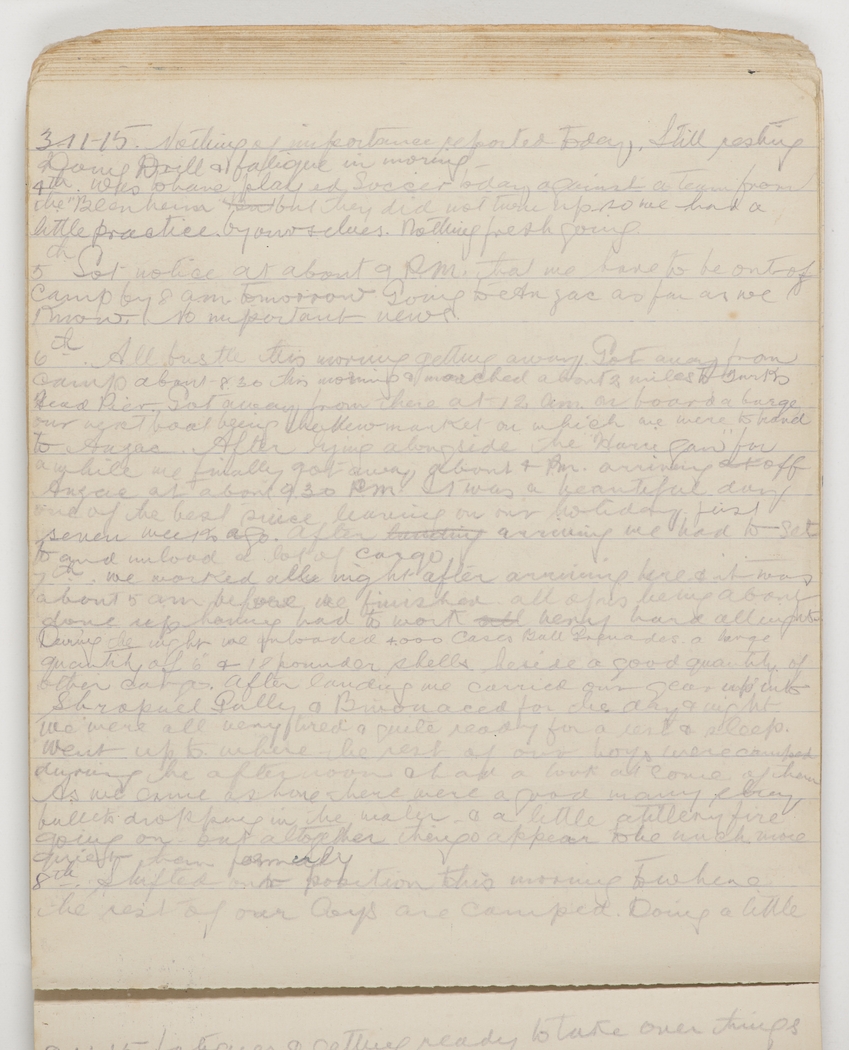 3-11-15. Nothing of importance reported today, Still resting
Doing Drill & fatigue in morning
4th. Was to have played Soccer today against a team from
the "Blenheim" but they did not turn up so we had a
little practice by ourselves. Nothing fresh going.
5th Got notice at about 9 P.M. that we have to be out of
Camp by 8 am tomorrow Going to Anzac as far as we
know. No important news.
6th. All bustle this morning getting away. Got away from
Camp about 8.30 this morning & marched about 2 miles to
Head Pier. Got away from there at 12 am on board a barge
our next boat being the Newmarket on which we were to
to Anzac. After lying alongside the for
a while we finally got away about 4 P.m. arriving at off
Anzac at about 9 30 P.M. It was a beautiful day
one of the best since leaving on our holiday just
seven weeks ago. After landing arriving we had to set
to and unload a lot of cargo
7th. we worked all night after arriving here & it was
about 5 am before we finished all of us being about
done up having had to work all very hard all night.
During the night we unloaded 4,000 Cases Ball Grenades. a large
quantity of 6" & 18 pounder shells beside a good quantity of
other cargo. After landing we carried our gear up into
Shrapnel Gully & Bivouaced for the day & night
We were all very tired & quite ready for a rest & sleep.
Went up to where the rest of our boys were camped
during the afternoon & had a look at some of them
As we came ashore there were a good many stray
bullets dropping in the water & a little artillery fire
going on but altogether things appear to be much more
quiet than formerly
8th. Shifted into position this morning to where
the rest of our boys are camped. Doing a little
fatigues & getting ready to take over things